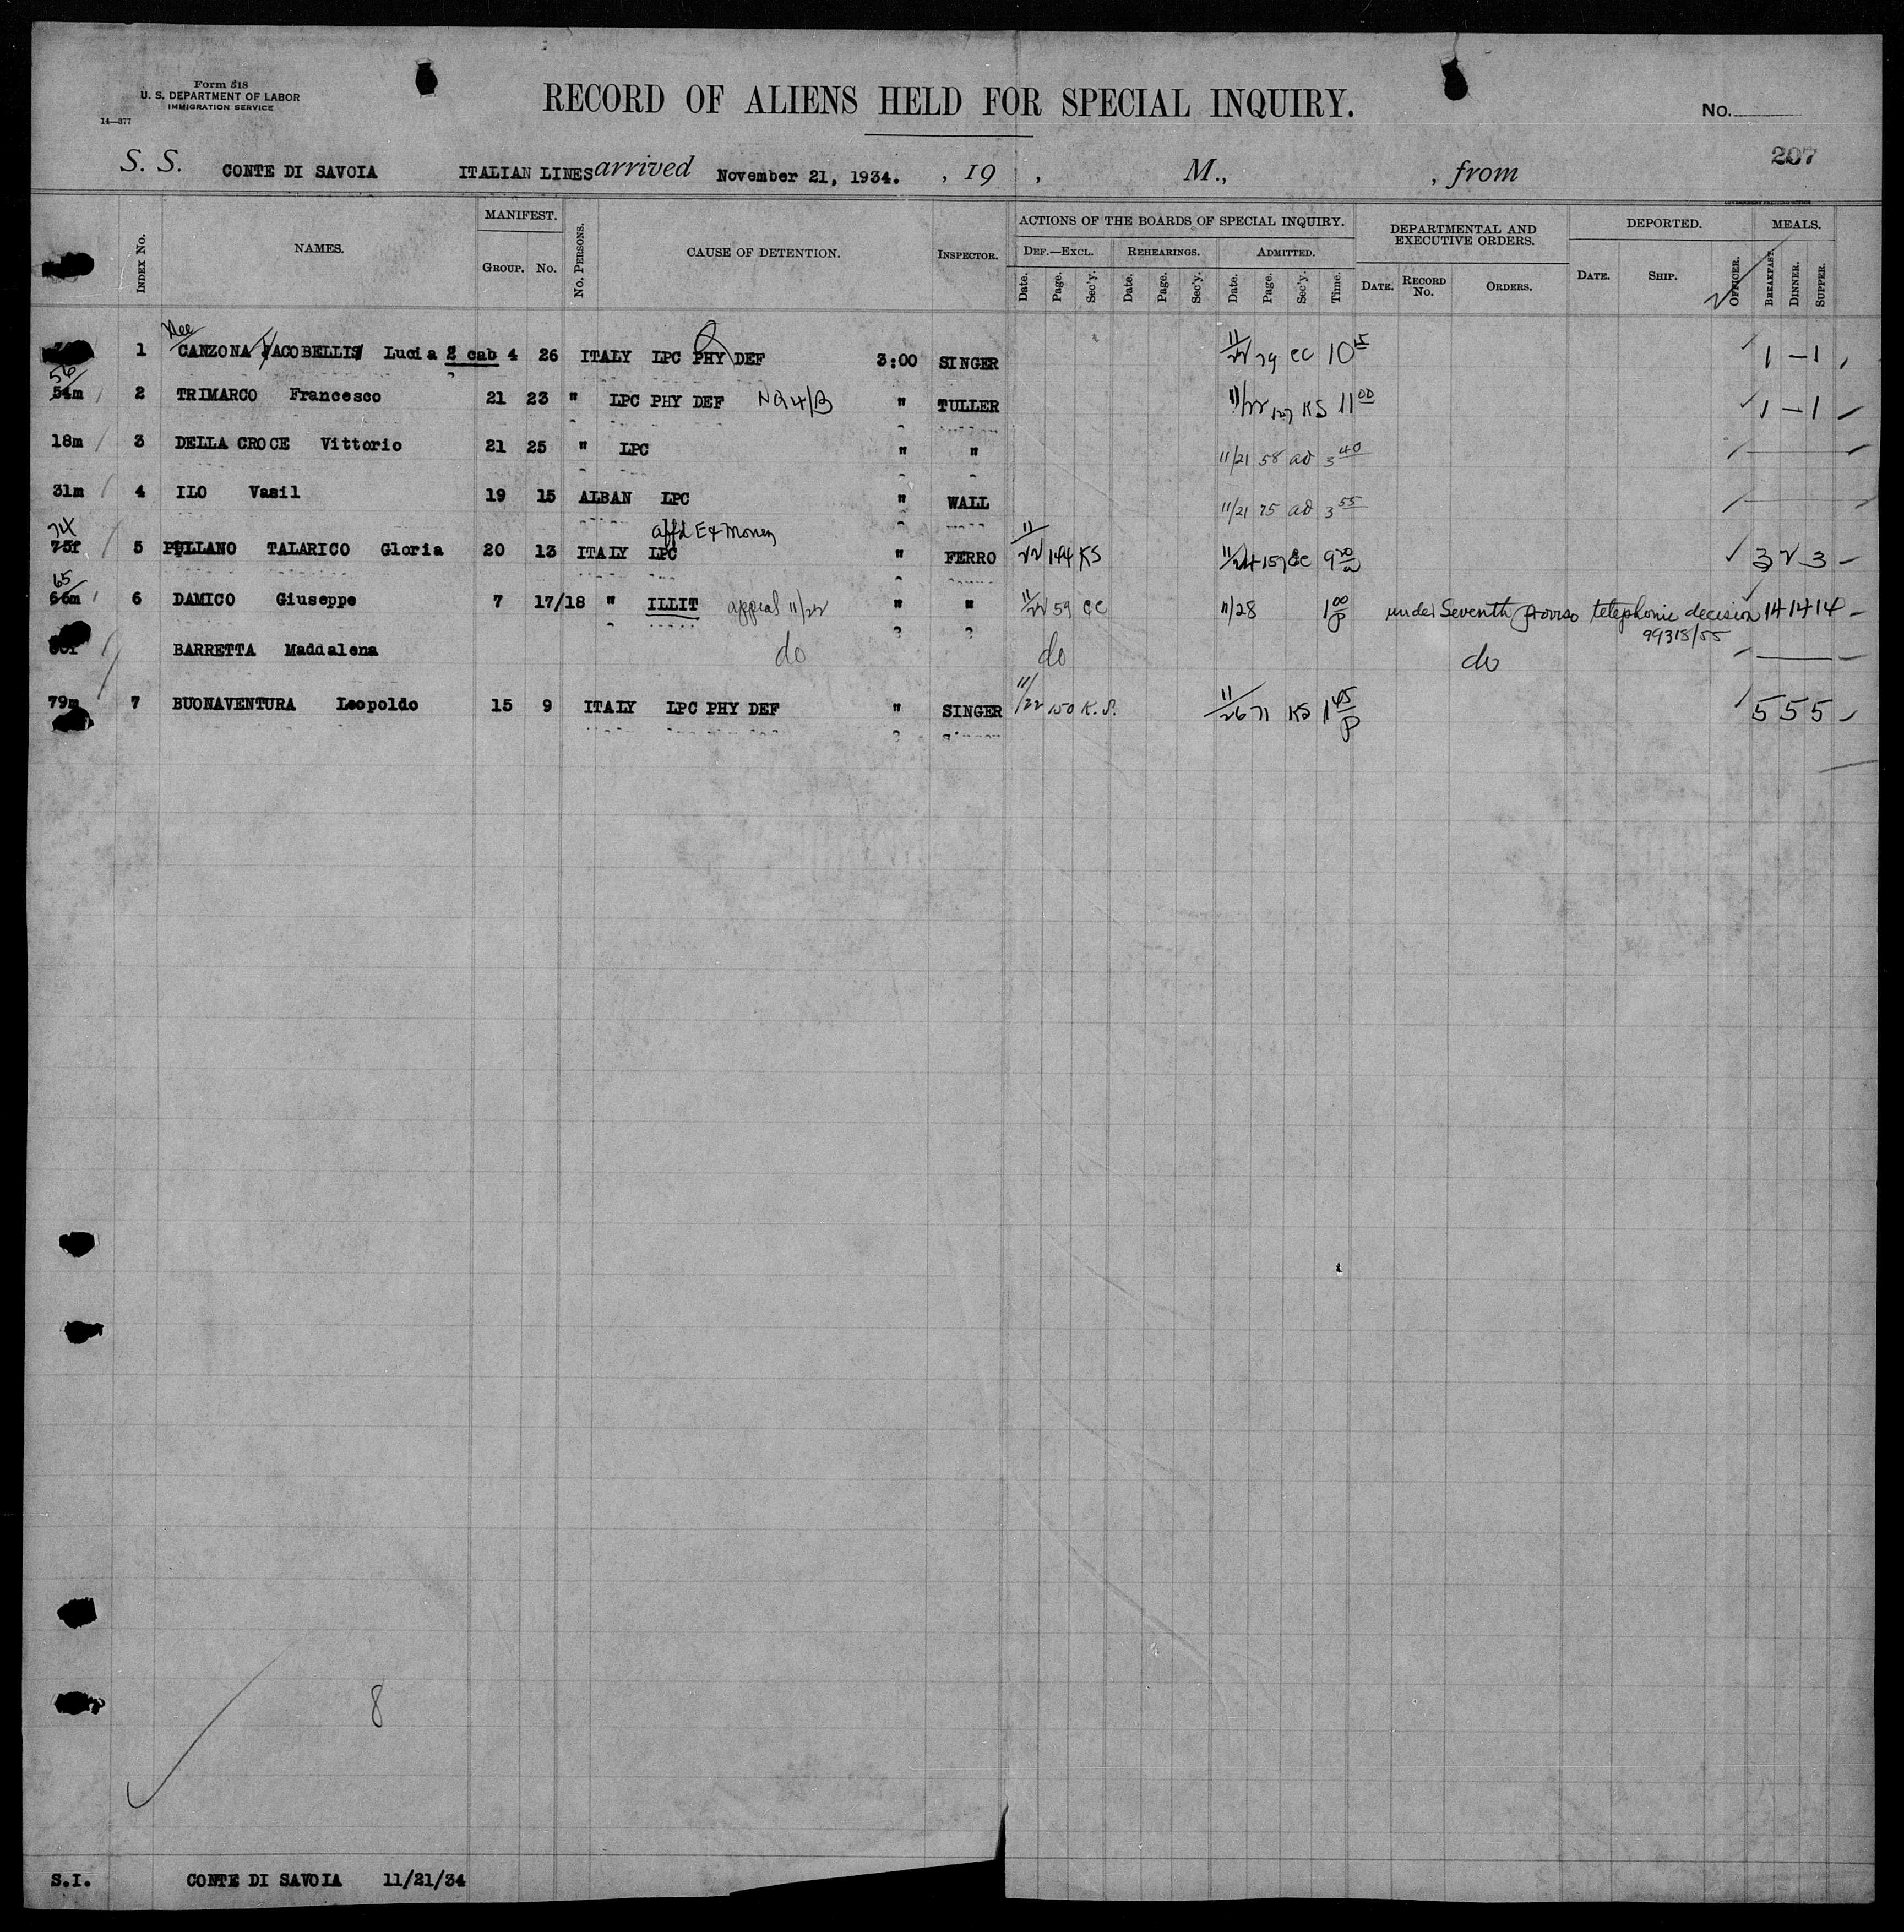 Form 518
U. S. DEPARTMENT OF LABOR
IMMIGRATION SERVICE
14—377
RECORD OF ALIENS HELD FOR SPECIAL INQUIRY.
No.
207
S. S. CONTE DI SAVOIA ITALIAN LINES arrived November 21, 1934. , 19 , M., , from
INDEX No. NAMES. MANIFEST. GROUP. NO. No. PERSONS. CAUSE OF DETENTION. INSPECTOR. ACTIONS OF THE BOARDS OF SPECIAL INQUIRY. DEF.—EXCL. Date. Page. Sec'y. REHEARINGS. Date. Page. Sec'y. ADMITTED. Date. Page. Sec'y. Time. DEPARTMENTAL AND EXECUTIVE ORDERS. DATE. RECORD No. ORDERS. DEPORTED. DATE. SHIP. OFFICER. MEALS. BREAKFAST. DINNER. SUPPER.
1 nee CANZONA JACOBELLIS Lucia 2 cab 4 26 ITALY LPC PHY DEF 3:00 SINGER 11/22 79 CC 10 45 1 — 1
56 54m 2 TRIMARCO Francesco 21 23 " LPC PHY DEF " TULLER 11/22 127 KS 11 00 1 — 1
18m 3 DELLA CROCE Vittorio 21 25 " LPC " " 11/21 58 ad 3 40
31m 4 ILO Vasil 19 15 ALBAN LPC " WALL 11/21 75 ad 3 55
74 73f 5 PULLANO TALARICO Gloria 20 13 ITALY LPC affd E & Money " FERRO 11/22 144 KS 11/24 157 CC 9 20 3 2 3
65 66m 6 DAMICO Giuseppe 7 17/18 " ILLIT appeal 11/22 " " 11/22 59 CC 11/28 1 00 P under Seventh proviso telephonic decision 99318/55 14 14 14
BARRETTA Maddalena do do do
79m 7 BUONAVENTURA Leopoldo 15 9 ITALY LPC PHY DEF " SINGER 11/22 150 K.S. 11/26 71 KS 1 45 P 5 5 5
8
S.I. CONTE DI SAVOIA 11/21/34